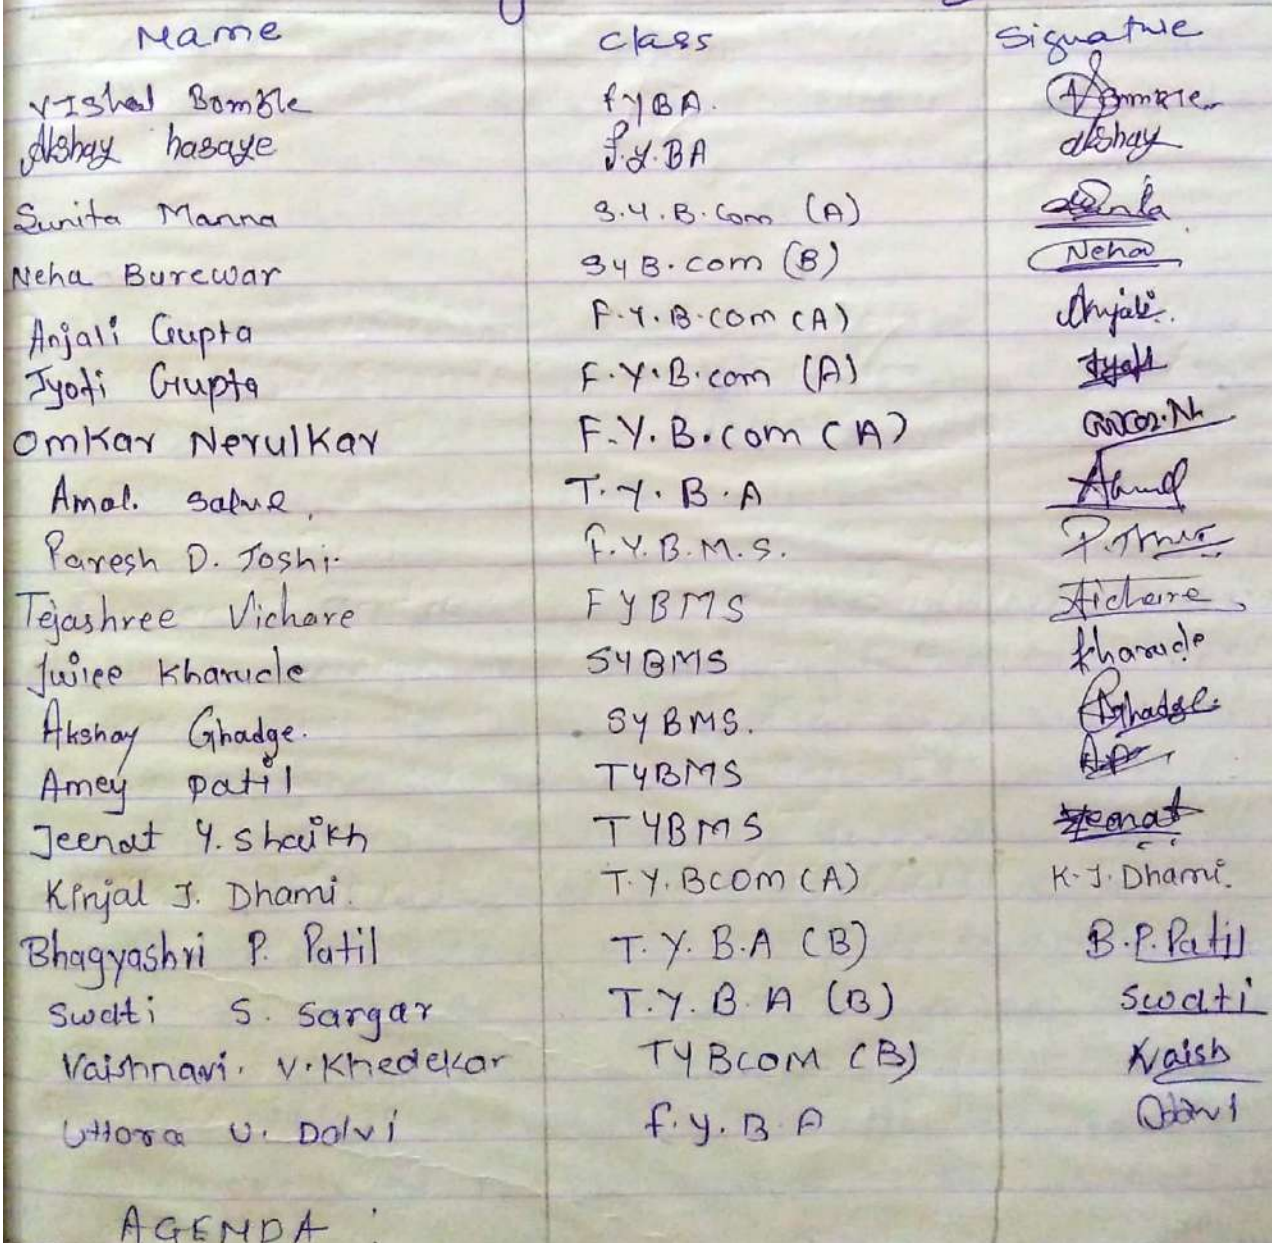 Name Class Signature
Vishal Bomble fYBA.
Akshay hasaye f.Y.BA akshay
Sunita Manna S.Y.B.Com (A)
Neha Burewar SYB.com (B) Neha
Anjali Gupta F.Y.B.com (A) Anjali.
Jyoti Gupta F.Y.B.com (A) Jyoti
Omkar Nerulkar F.Y.B.com (A)
Amol. Salve, T.Y.B.A
Paresh D. Joshi. F.Y.B.M.S.
Tejashree Vichare FYBMS Vichare
Juilee Kharude SYBMS Kharude
Akshay Ghadge. SYBMS. Ghadge.
Amey patil TYBMS
Jeenat Y. Shaikh TYBMS Jeenat
Kinjal J. Dhami. T.Y.BCOM (A) K.J.Dhami.
Bhagyashri P. Patil T.Y.B.A (B) B.P.Patil
Swati S. Sargar T.Y.B.A (B) Swati
Vaishnavi. V.Khedekar TYBCOM (B) Vaish
Uttora U. Dalvi f.y.B.A
AGENDA :